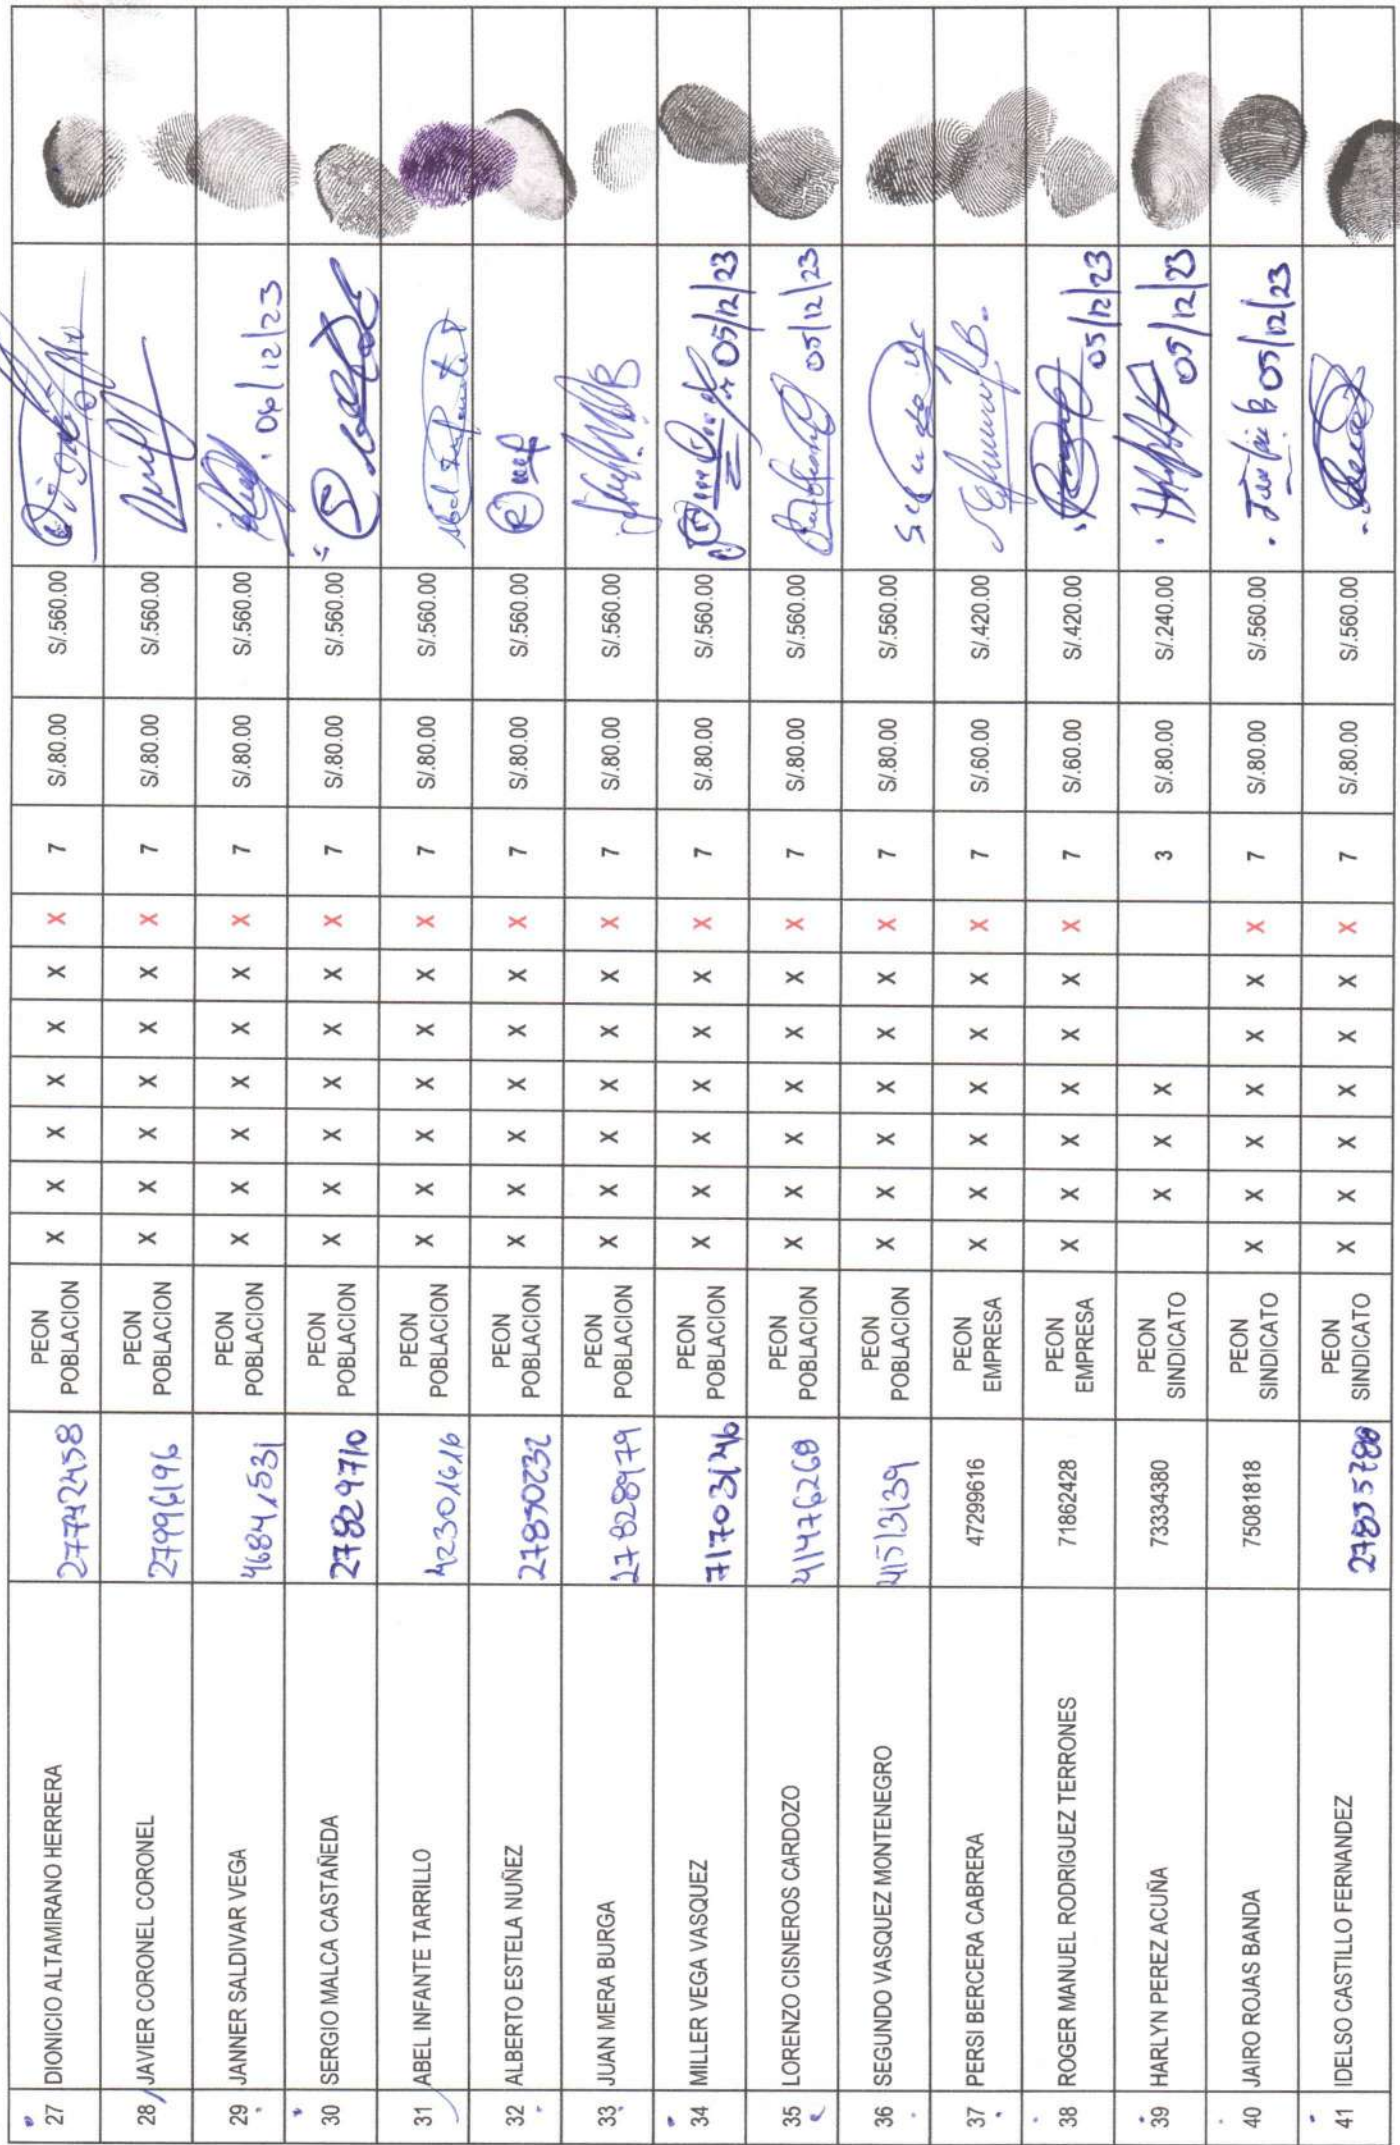 27 DIONICIO ALTAMIRANO HERRERA 27742458 PEON POBLACION X X X X X X X 7 S/.80.00 S/.560.00
28 JAVIER CORONEL CORONEL 27996196 PEON POBLACION X X X X X X X 7 S/.80.00 S/.560.00
29 JANNER SALDIVAR VEGA 46841531 PEON POBLACION X X X X X X X 7 S/.80.00 S/.560.00 06/12/23
30 SERGIO MALCA CASTAÑEDA 27829710 PEON POBLACION X X X X X X X 7 S/.80.00 S/.560.00
31 ABEL INFANTE TARRILLO 42301616 PEON POBLACION X X X X X X X 7 S/.80.00 S/.560.00
32 ALBERTO ESTELA NUÑEZ 27850232 PEON POBLACION X X X X X X X 7 S/.80.00 S/.560.00
33 JUAN MERA BURGA 27828979 PEON POBLACION X X X X X X X 7 S/.80.00 S/.560.00
34 MILLER VEGA VASQUEZ 71703146 PEON POBLACION X X X X X X X 7 S/.80.00 S/.560.00 05/12/23
35 LORENZO CISNEROS CARDOZO 41476269 PEON POBLACION X X X X X X X 7 S/.80.00 S/.560.00 05/12/23
36 SEGUNDO VASQUEZ MONTENEGRO 41513139 PEON POBLACION X X X X X X X 7 S/.80.00 S/.560.00
37 PERSI BERCERA CABRERA 47299616 PEON EMPRESA X X X X X X X 7 S/.60.00 S/.420.00
38 ROGER MANUEL RODRIGUEZ TERRONES 71862428 PEON EMPRESA X X X X X X X 7 S/.60.00 S/.420.00 05/12/23
39 HARLYN PEREZ ACUÑA 73334380 PEON SINDICATO X X X 3 S/.80.00 S/.240.00 05/12/23
40 JAIRO ROJAS BANDA 75081818 PEON SINDICATO X X X X X X X 7 S/.80.00 S/.560.00 05/12/23
41 IDELSO CASTILLO FERNANDEZ PEON SINDICATO X X X X X X X 7 S/.80.00 S/.560.00